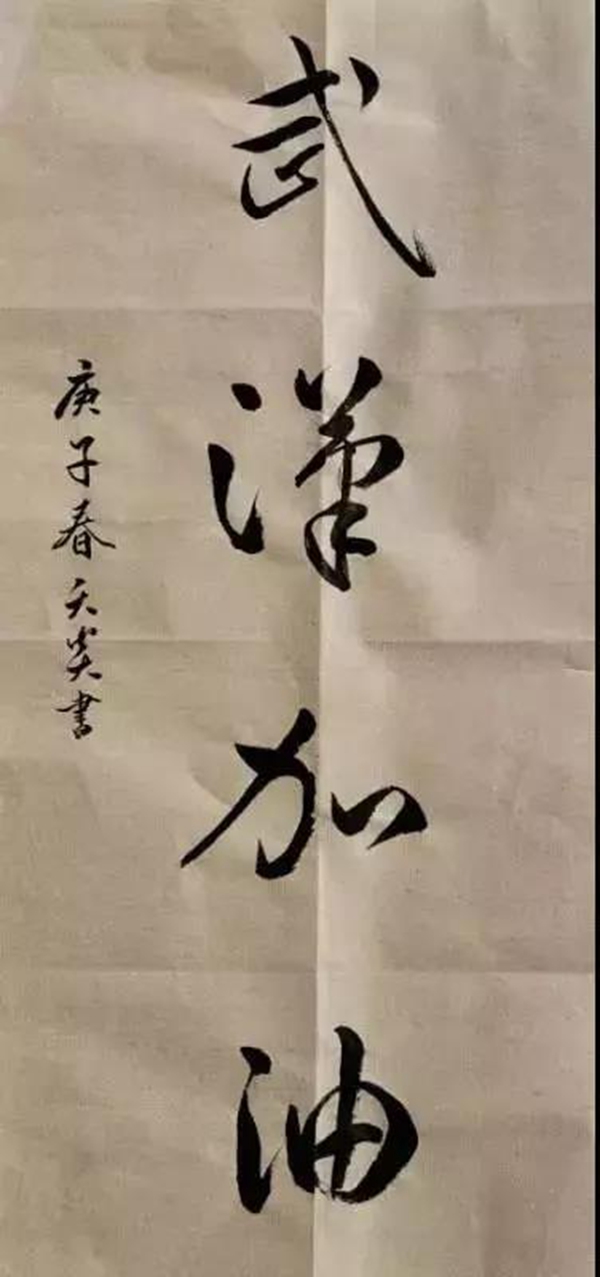 武漢加油
庚子春天炎書